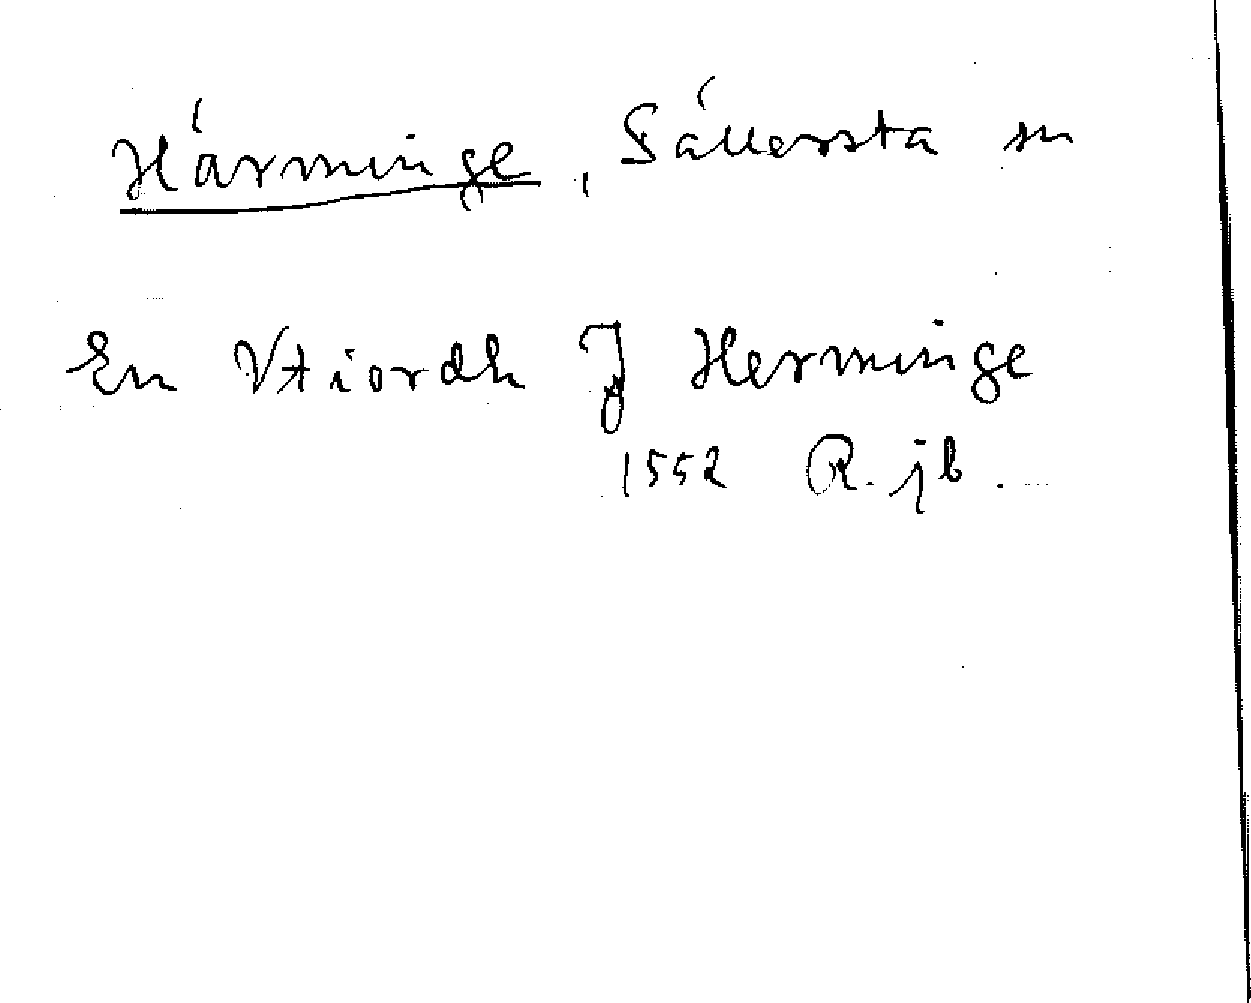 Härminge, Sällersta sn
En Vtiordh J Herminge
1552 R. jb.